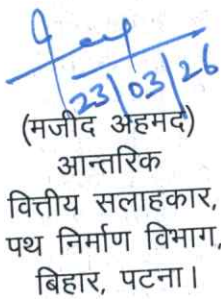 23/03/26
(मजीद अहमद)
आन्तरिक
वित्तीय सलाहकार,
पथ निर्माण विभाग,
बिहार, पटना।